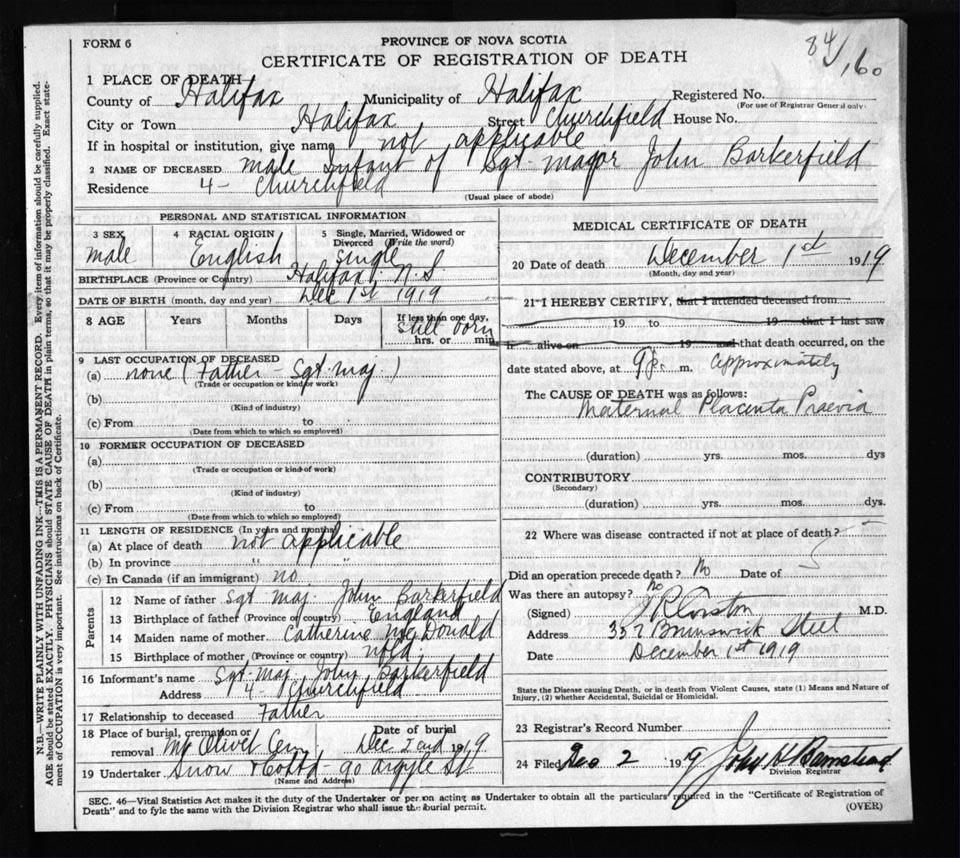 FORM 6
PROVINCE OF NOVA SCOTIA
CERTIFICATE OF REGISTRATION OF DEATH
84/160
1 PLACE OF DEATH
County of Halifax Municipality of Halifax Registered No.
(For use of Registrar General only)
City or Town Halifax Street Churchfield House No.
If in hospital or institution, give name not applicable
2 NAME OF DECEASED male Infant of Sgt-major John Barkerfield
Residence 4 - Churchfield
(Usual place of abode)
PERSONAL AND STATISTICAL INFORMATION
3 SEX 4 RACIAL ORIGIN 5 Single, Married, Widowed or Divorced (Write the word)
male English single
BIRTHPLACE (Province or Country) Halifax, N.S.
DATE OF BIRTH (month, day and year) Dec 1st 1919
8 AGE Years Months Days If less than one day, hrs. or min.
still born
9 LAST OCCUPATION OF DECEASED
(a) none (Father - Sgt maj.)
(Trade or occupation or kind of work)
(b)
(Kind of industry)
(c) From to
(Date from which to which so employed)
10 FORMER OCCUPATION OF DECEASED
(a)
(Trade or occupation or kind of work)
(b)
(Kind of industry)
(c) From to
(Date from which to which so employed)
11 LENGTH OF RESIDENCE (In years and months)
(a) At place of death not applicable
(b) In province " "
(c) In Canada (if an immigrant) no
Parents
12 Name of father Sgt maj. John Barkerfield
13 Birthplace of father (Province or country) England
14 Maiden name of mother Catherine McDonald
15 Birthplace of mother (Province or country) nfld.
16 Informant's name Sgt-maj. John Barkerfield
Address 4 - Churchfield
17 Relationship to deceased Father
18 Place of burial, cremation or removal Mt Olivet Cem. Date of burial Dec 2nd 1919
19 Undertaker Snow & Co Ltd - 90 Argyle St.
(Name and Address)
MEDICAL CERTIFICATE OF DEATH
20 Date of death December 1st 1919
(Month, day and year)
21 I HEREBY CERTIFY, that I attended deceased from
19 to 19 that I last saw
h alive on 19 and that death occurred, on the
date stated above, at 9 p. m. approximately
The CAUSE OF DEATH was as follows:
Maternal Placenta Praevia
(duration) yrs. mos. dys
CONTRIBUTORY
(Secondary)
(duration) yrs. mos. dys.
22 Where was disease contracted if not at place of death?
Did an operation precede death? No Date of
Was there an autopsy? No
(Signed) M.D.
Address 357 Brunswick Street
Date December 1st 1919
State the Disease causing Death, or in death from Violent Causes, state (1) Means and Nature of
Injury, (2) whether Accidental, Suicidal or Homicidal.
23 Registrar's Record Number
24 Filed Dec 2 1919 John H Barnstead
Division Registrar
SEC. 46—Vital Statistics Act makes it the duty of the Undertaker or person acting as Undertaker to obtain all the particulars required in the "Certificate of Registration of
Death" and to fyle the same with the Division Registrar who shall issue the burial permit. (OVER)
N.B.—WRITE PLAINLY WITH UNFADING INK—THIS IS A PERMANENT RECORD. Every item of information should be carefully supplied.
AGE should be stated EXACTLY. PHYSICIANS should STATE CAUSE OF DEATH in plain terms, so that it may be properly classified. Exact state-
ment of OCCUPATION is very important. See instructions on back of Certificate.